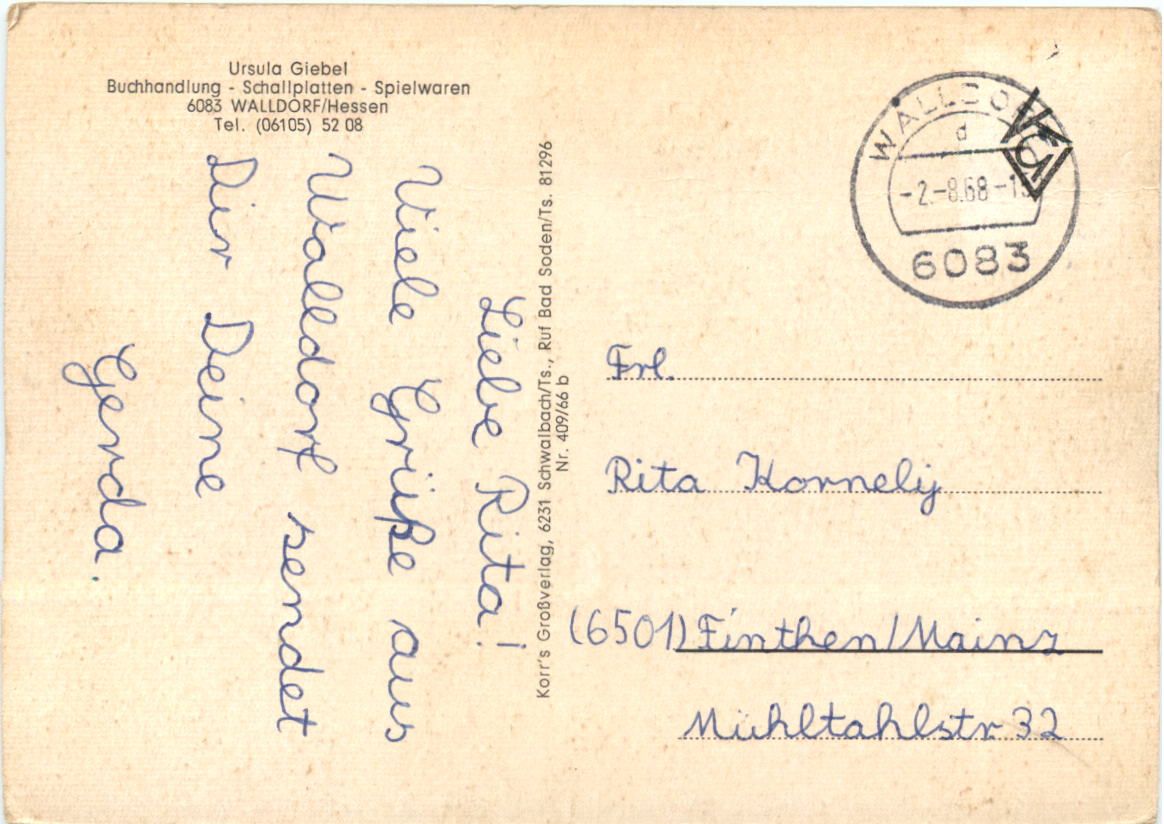 Ursula Giebel
Buchhandlung - Schallplatten - Spielwaren
6083 WALLDORF/Hessen
Tel. (06105) 52 08
Liebe Rita!
Viele Grüße aus
Walldorf sendet
Dir Deine
Gerda.
Korr's Großverlag, 6231 Schwalbach/Ts., Ruf Bad Soden/Ts. 81296
Nr. 409/66 b
WALLDORF
d
-2.-8.68-1
6083
Frl.
Rita Kornely
(6501) Finthen/Mainz
Mühltahlstr 32